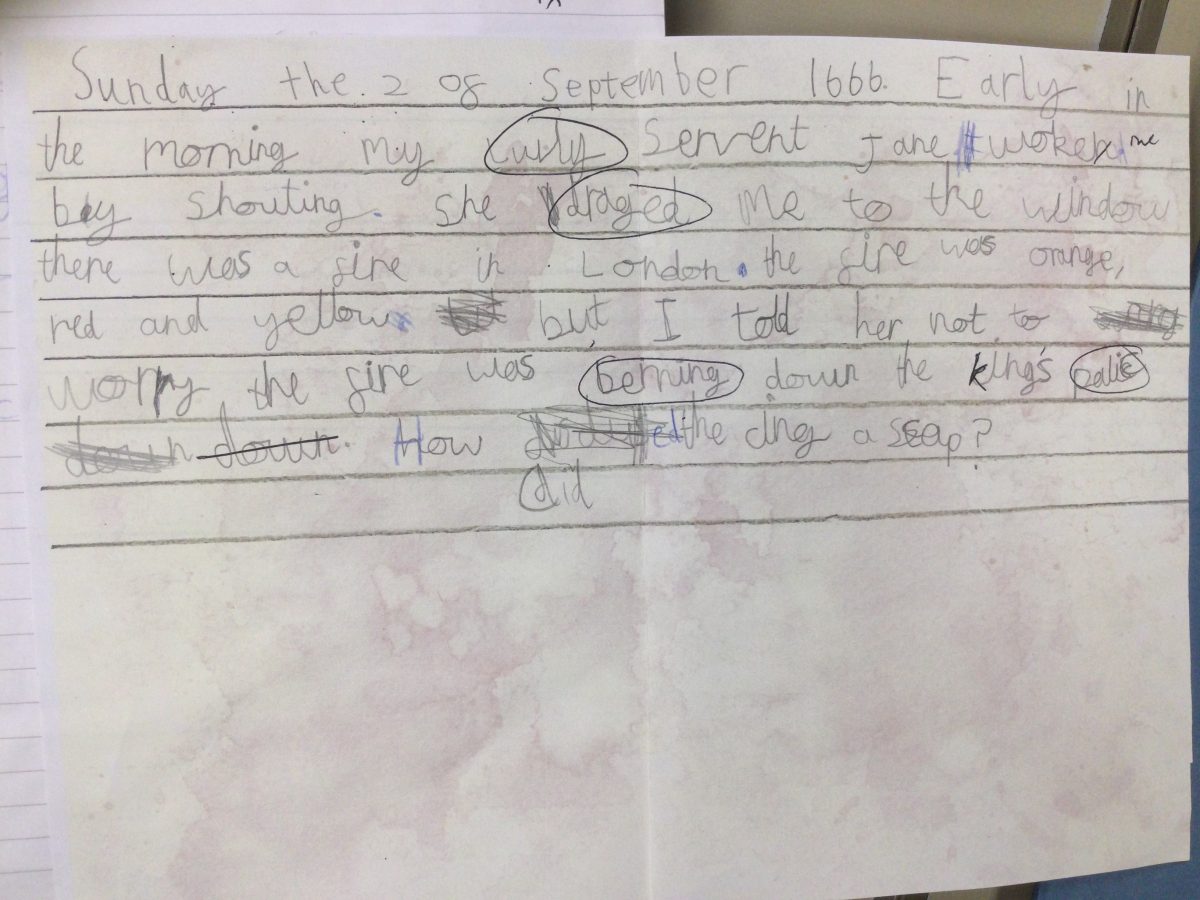 Sunday the 2 of September 1666. Early in
the morning my curly servent Jane woke me
by shouting. She draged me to the window
there was a fire in London. the fire was orange,
red and yellow but, I told her not to
worry the fire was berning down the king's palic
down down. How the cing a seap?
did